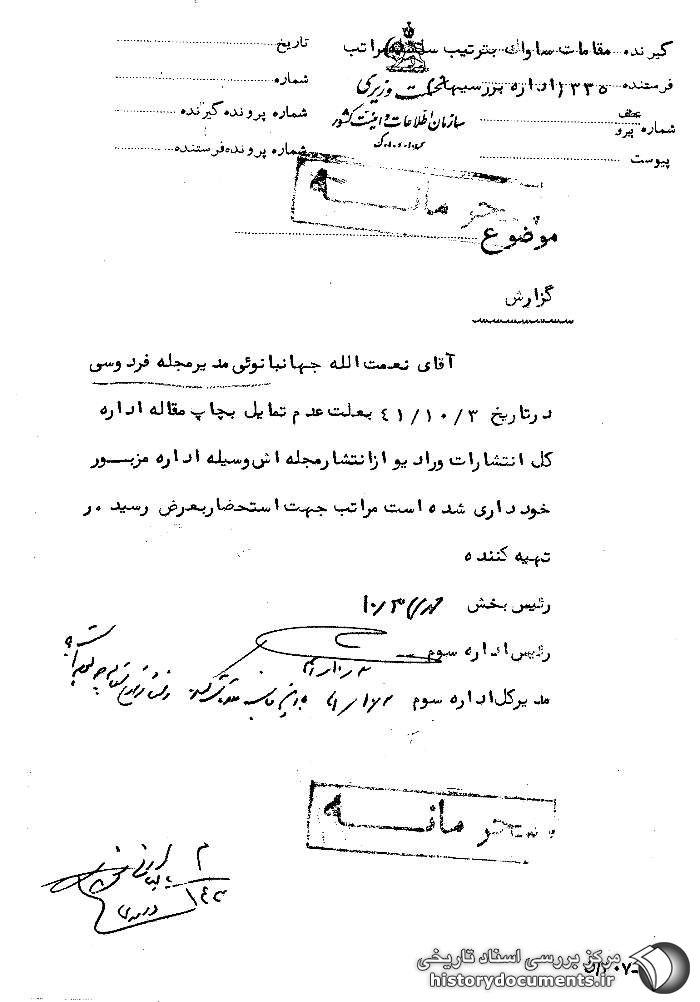 گیرنده مقامات ساواک بترتیب سلسله مراتب
تاریخ
فرستنده ۳۳۵ (اداره بررسیها)
نخست وزیری
شماره
سازمان اطلاعات و امنیت کشور
س.ا.و.ا.ک
شماره عطف
پیرو
شماره پرونده گیرنده
پیوست
شماره پرونده فرستنده
محرمانه
موضوع
گزارش
آقای نعمت الله جهانبانوئی مدیر مجله فردوسی
در تاریخ ۴۱/۱۰/۳ بعلت عدم تمایل بچاپ مقاله اداره
کل انتشارات و رادیو از انتشار مجله اش وسیله اداره مزبور
خودداری شده است مراتب جهت استحضار بعرض رسید .ر
تهیه کننده
رئیس بخش ۱۰/۳
رئیس اداره سوم
مدیرکل اداره سوم
محرمانه
مرکز بررسی اسناد تاریخی
historydocuments.ir